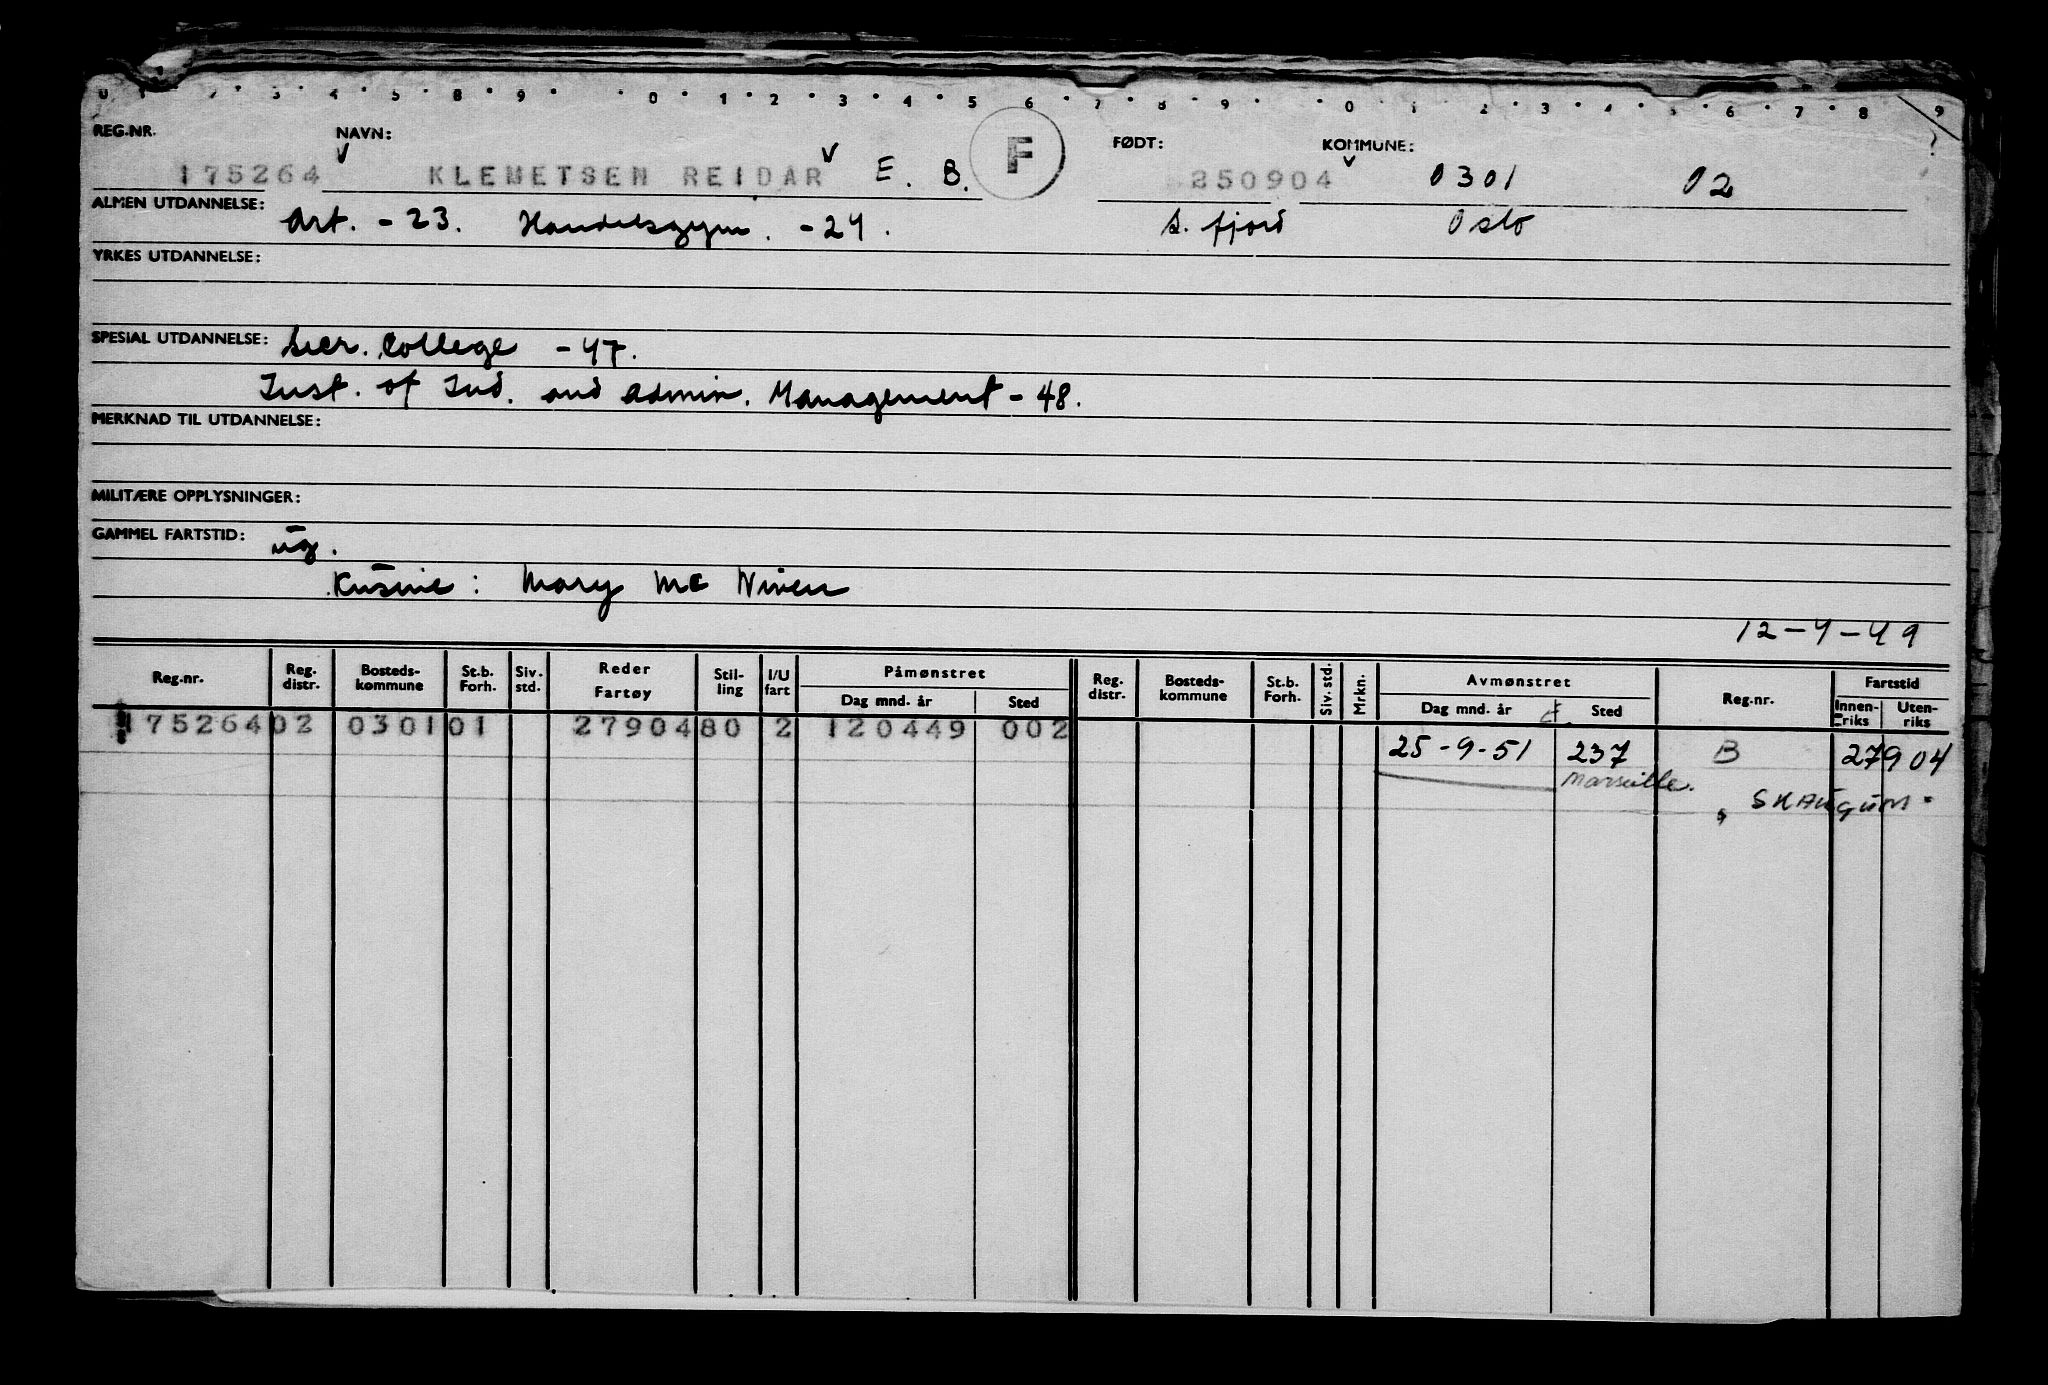 0 1 2 3 4 5 8 9 0 1 2 3 4 5 6 7 8 9 0 1 2 3 4 5 6 7 8 9
REG.NR. NAVN: FØDT: KOMMUNE:
175264 KLEMETSEN REIDAR E. B. F 250904 0301 02
ALMEN UTDANNELSE: Art. - 23. Handelsgym. - 24. S. fjord Oslo
YRKES UTDANNELSE:
SPESIAL UTDANNELSE: Secr. College - 47.
Inst. of Ind. and Admin. Management - 48.
MERKNAD TIL UTDANNELSE:
MILITÆRE OPPLYSNINGER:
GAMMEL FARTSTID: ug.
Kusine: Mary Mc Niven
12-4-49
Reg.nr. Reg. distr. Bosteds-kommune St.b. Forh. Siv. std. Reder Fartøy Stil-ling I/U fart Påmønstret Dag mnd. år Sted Reg. distr. Bosteds-kommune St.b. Forh. Siv. std. Mrkn. Avmønstret Dag mnd. år Sted Reg.nr. Fartstid Innen-riks Uten-riks
175264 02 0301 01 27904 80 2 120449 002
25-9-51 237 B 27904
Marseille. "SKAUGUM"